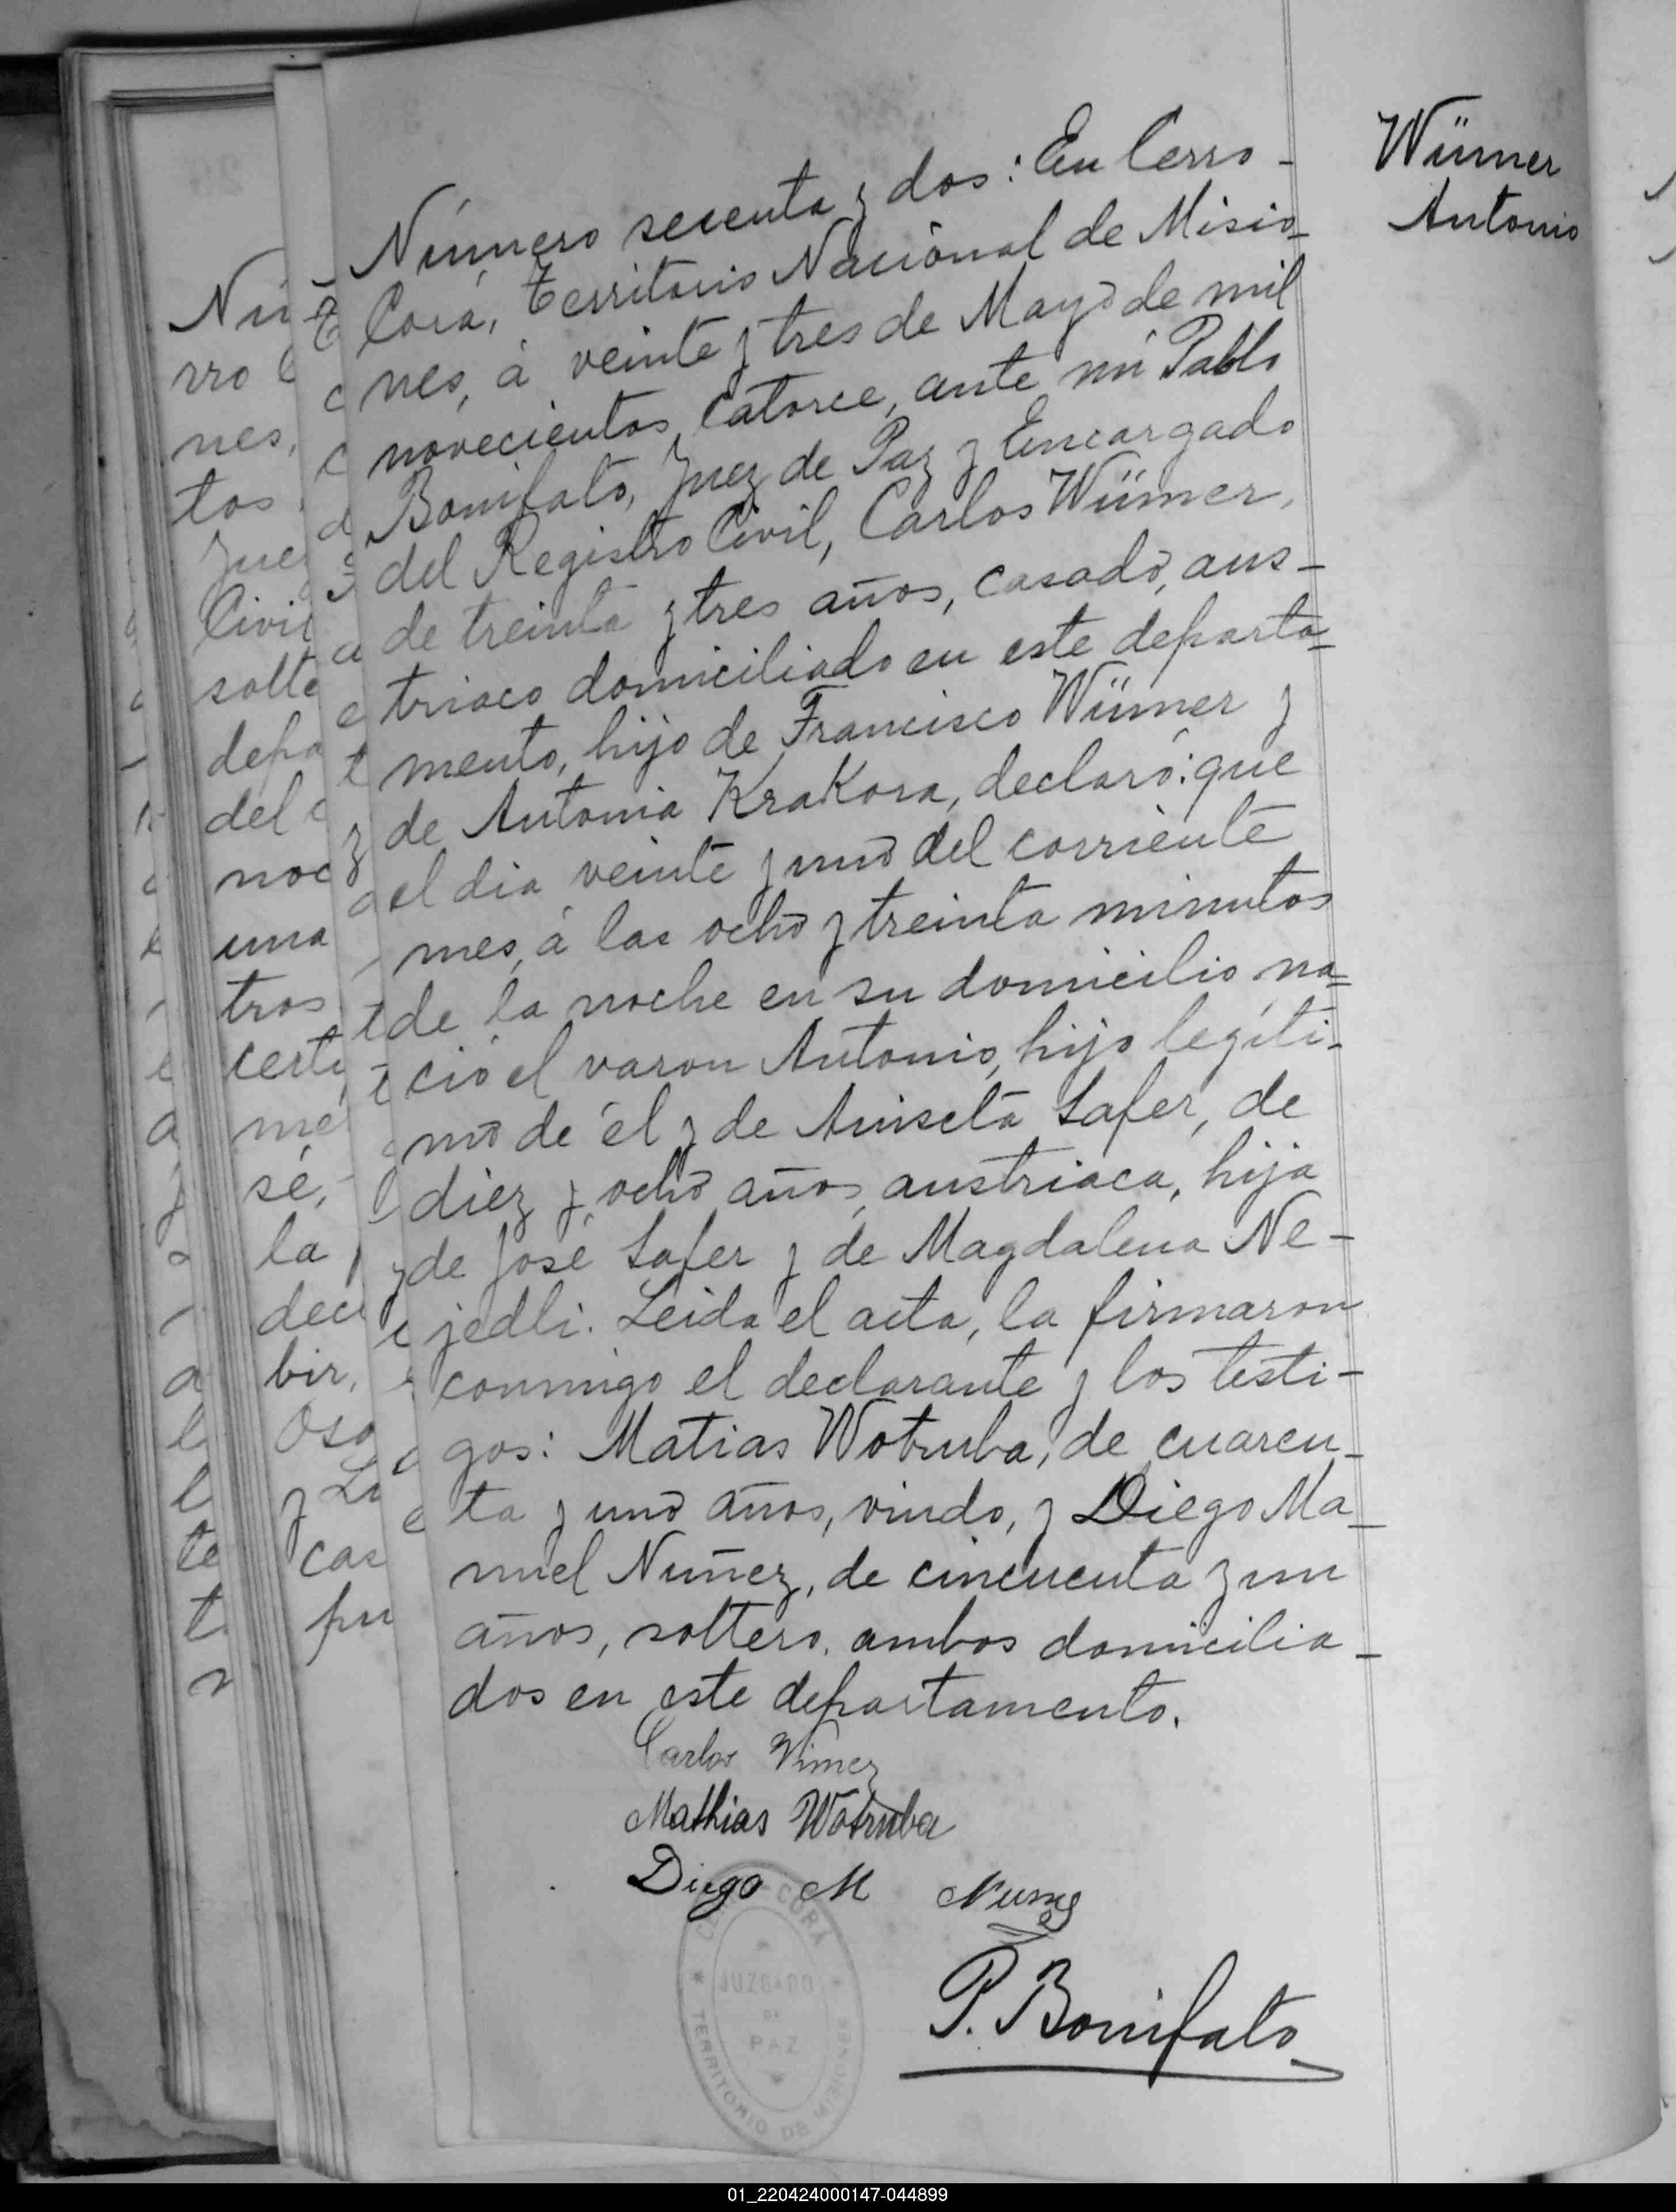 Wümer
Antonio
Número sesenta y dos: En Cerro-
Corá, Territorio Nacional de Misio-
nes, á veinte y tres de Mayo de mil
novecientos catorce, ante mí Pablo
Bonifato, Juez de Paz y Encargado
del Registro Civil, Carlos Wümer,
de treinta y tres años, casado, aus-
triaco domiciliado en este departa=
mento, hijo de Francisco Wümer y
de Antonia KraKora, declaró: que
el dia veinte y uno del corriente
mes, á las ocho y treinta minutos
de la noche en su domicilio na=
ció el varon Antonio, hijo legíti-
mo de él y de Aniseta Safer, de
diez y ocho años, austriaca, hija
de José Safer y de Magdalena Ne-
jedli. Leida el acta, la firmaron
conmigo el declarante y los testi-
gos: Matias Wotruba, de cuaren-
ta y uno años, viudo, y Diego Ma-
nuel Nuñez, de cincuenta y un
años, soltero, ambos domicilia-
dos en este departamento.
Carlos Vimer
Mathias Wotruba
Diego M Nuñez
P. Bonifato
CERRO CORÁ
JUZGADO
DE
PAZ
TERRITORIO DE MISIONES
Nú
rro
nes,
tos
Jue
Civi
solte
depa
del
noc
una
tros
certi
me
sé,
la
dec
bir,
Oso
y Li
cas
pu
01_220424000147-044899